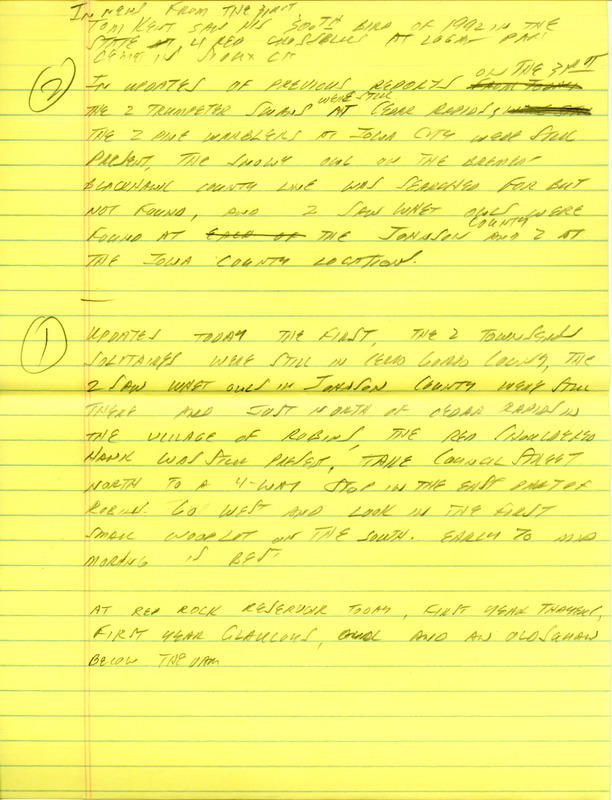 IN NEWS FROM THE FIRST
TOM KENT SAW HIS 300TH BIRD OF 1992 IN THE
STATE 4 RED CROSSBILLS AT LOGAN PARK
CEMET IN SIOUX CIT
2 IN UPDATES OF PREVIOUS REPORTS ON THE 3RD
THE 2 TRUMPETER SWANS WERE STILL AT CEDAR RAPIDS,
THE 2 PINE WARBLERS AT IOWA CITY WERE STILL
PRESENT, THE SNOWY OWL ON THE BREMER
BLACKHAWK COUNTY LINE WAS SEARCHED FOR BUT
NOT FOUND, AND 2 SAW WHET OWLS WERE
FOUND AT EACH OF THE JOHNSON COUNTY AND 2 AT
THE IOWA COUNTY LOCATION.
1 UPDATES TODAY THE FIRST, THE 2 TOWNSENDS
SOLITAIRES WERE STILL IN CERRO GORDO COUNTY, THE
2 SAW WHET OWLS IN JOHNSON COUNTY WERE STILL
THERE AND JUST NORTH OF CEDAR RAPIDS IN
THE VILLAGE OF ROBINS, THE RED SHOULDERED
HAWK WAS STILL PRESENT, TAKE COUNCIL STREET
NORTH TO A 4-WAY STOP IN THE EAST PART OF
ROBIN. GO WEST AND LOOK IN THE FIRST
SMALL WOODLOT ON THE SOUTH. EARLY TO MID
MORNING IS BEST.
AT RED ROCK RESERVOIR TODAY, FIRST YEAR THAYERS,
FIRST YEAR GLAUCOUS, AND AN OLDSQUAW
BELOW THE DAM